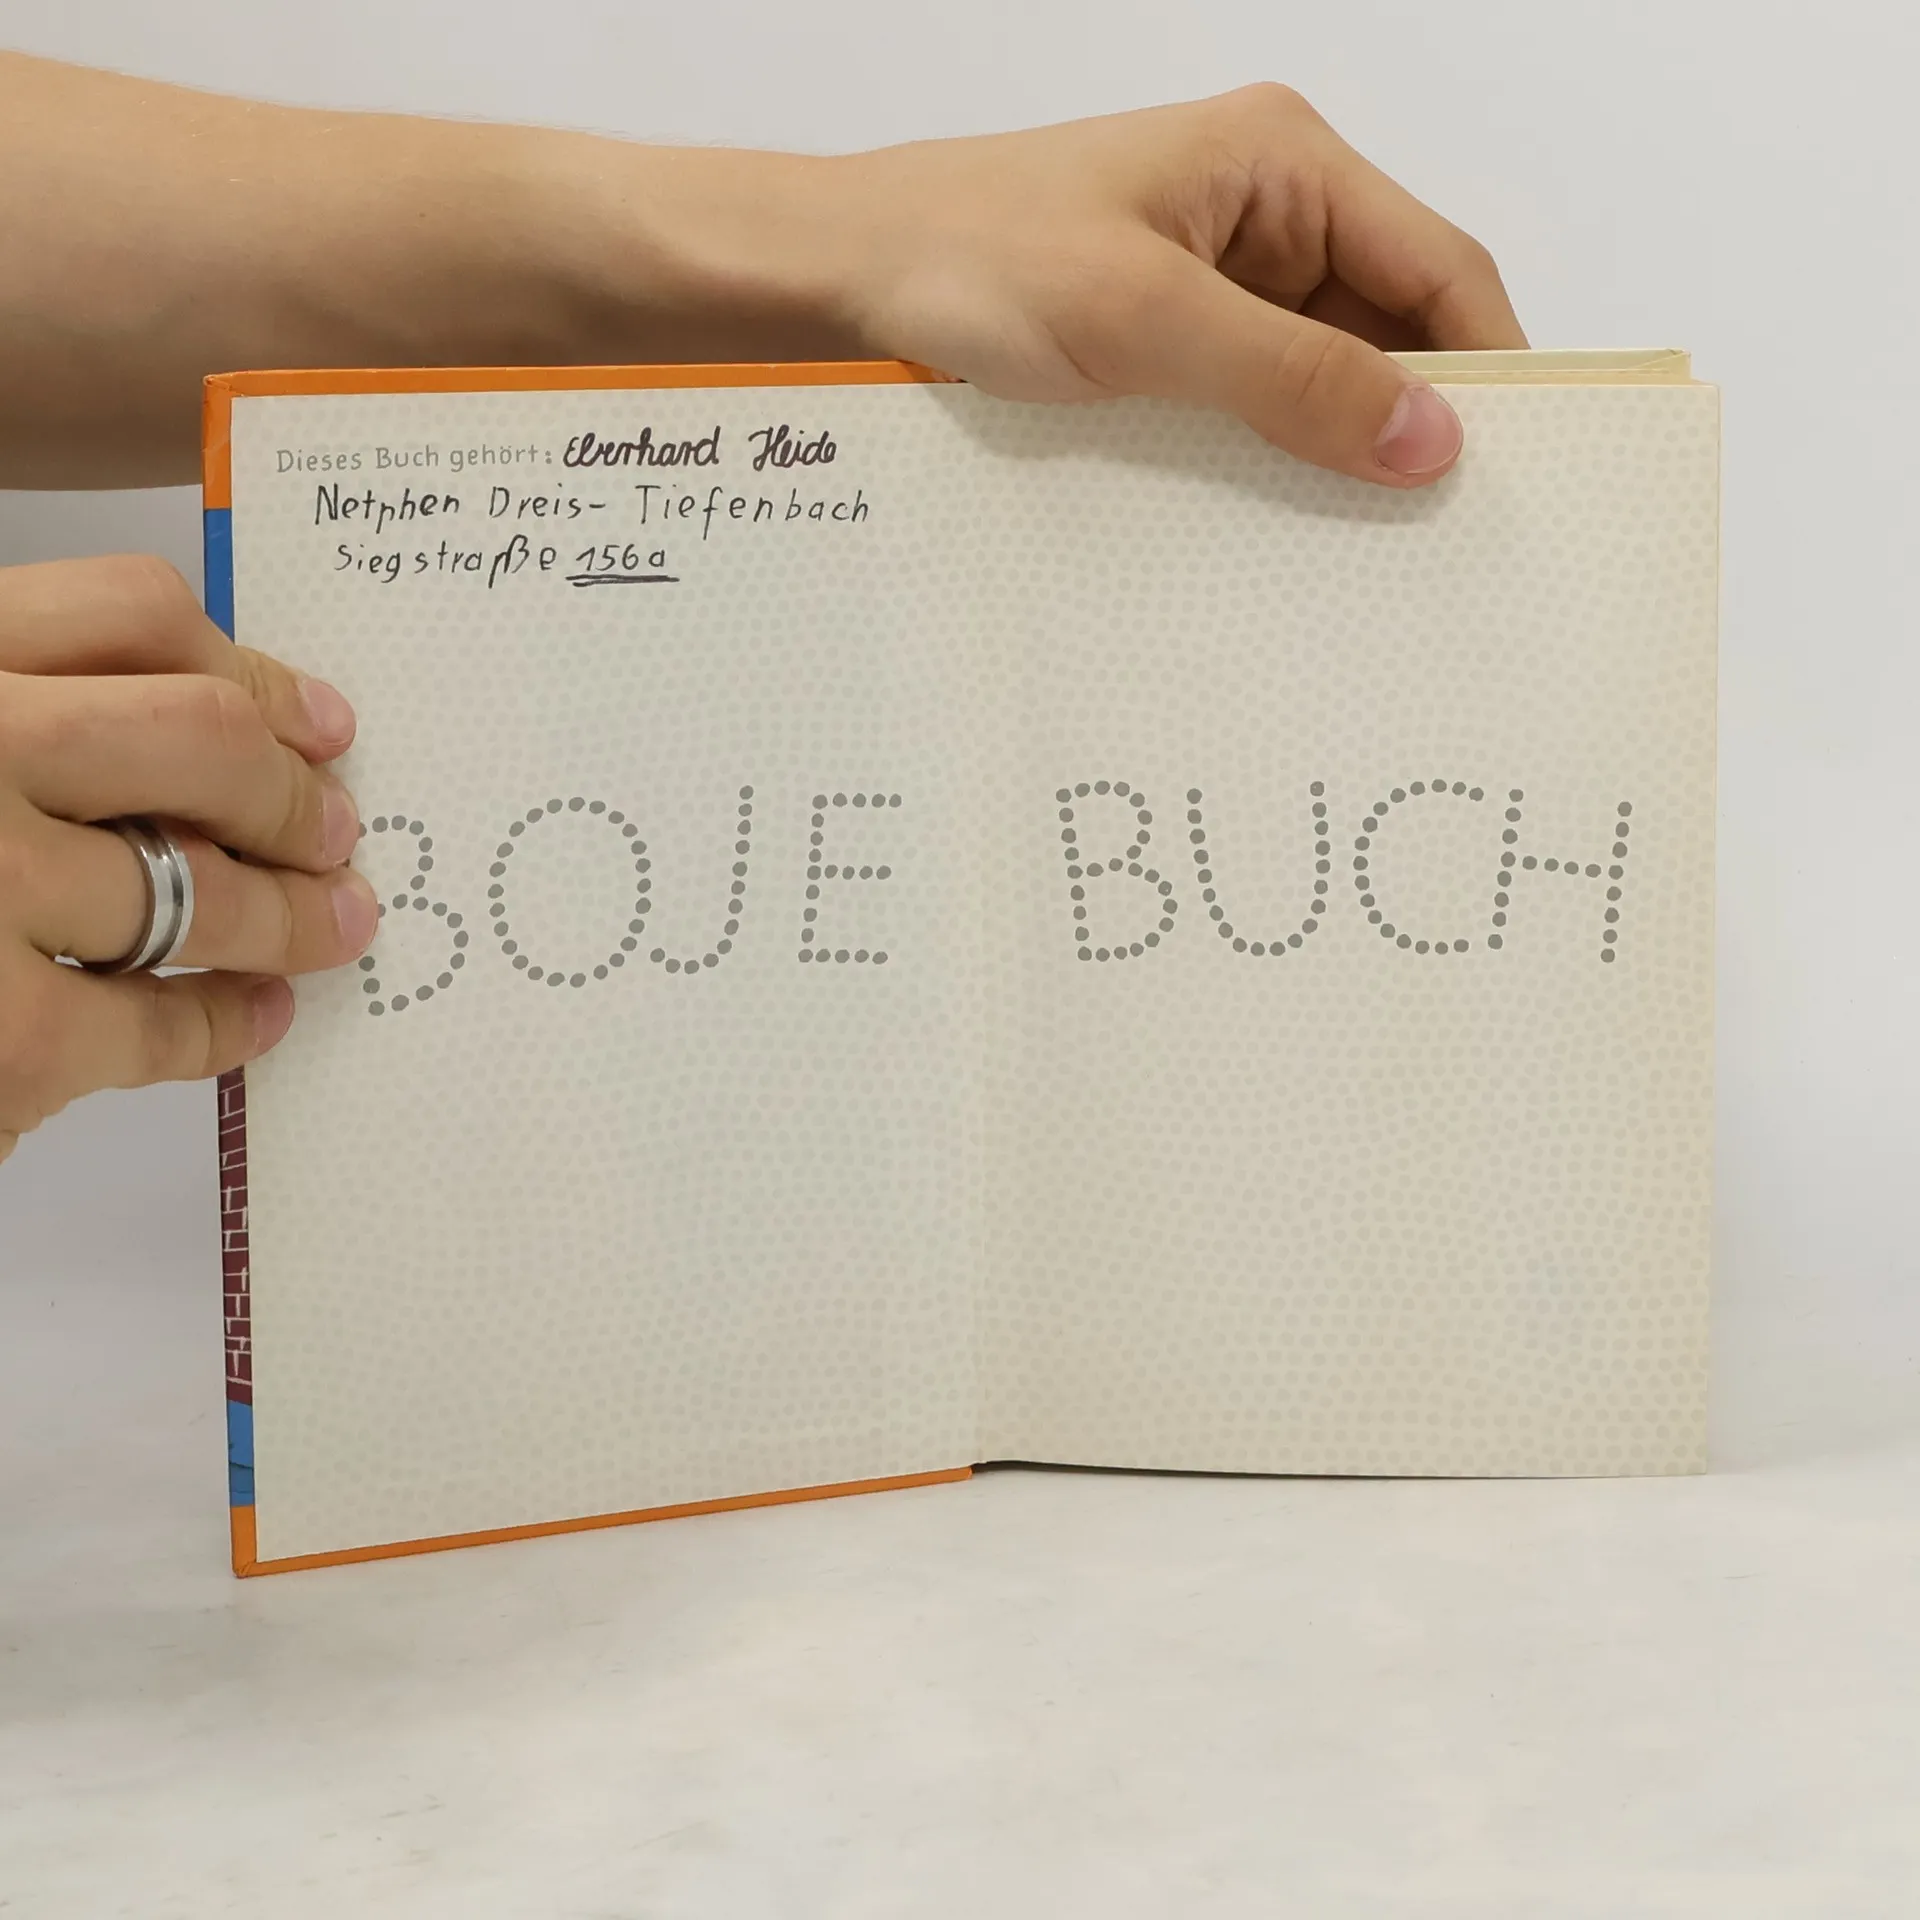 Dieses Buch gehört: Eberhard Heide
Netphen Dreis- Tiefenbach
Siegstraße 156a
BOJE BUCH